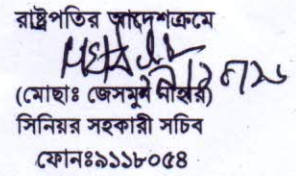 রাষ্ট্রপতির আদেশক্রমে
(মোছাঃ জেসমুন নাহার)
সিনিয়র সহকারী সচিব
ফোনঃ৯১১৮০৫৪